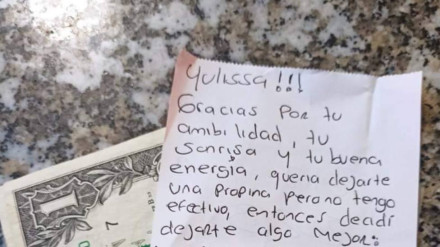 Yulissa!!!
Gracias por tu
ambilidad, tu
sonrisa y tu buena
energia, queria dejarte
una propina pero no tengo
efectivo, entonces decidi
dejarte algo mejor:
1